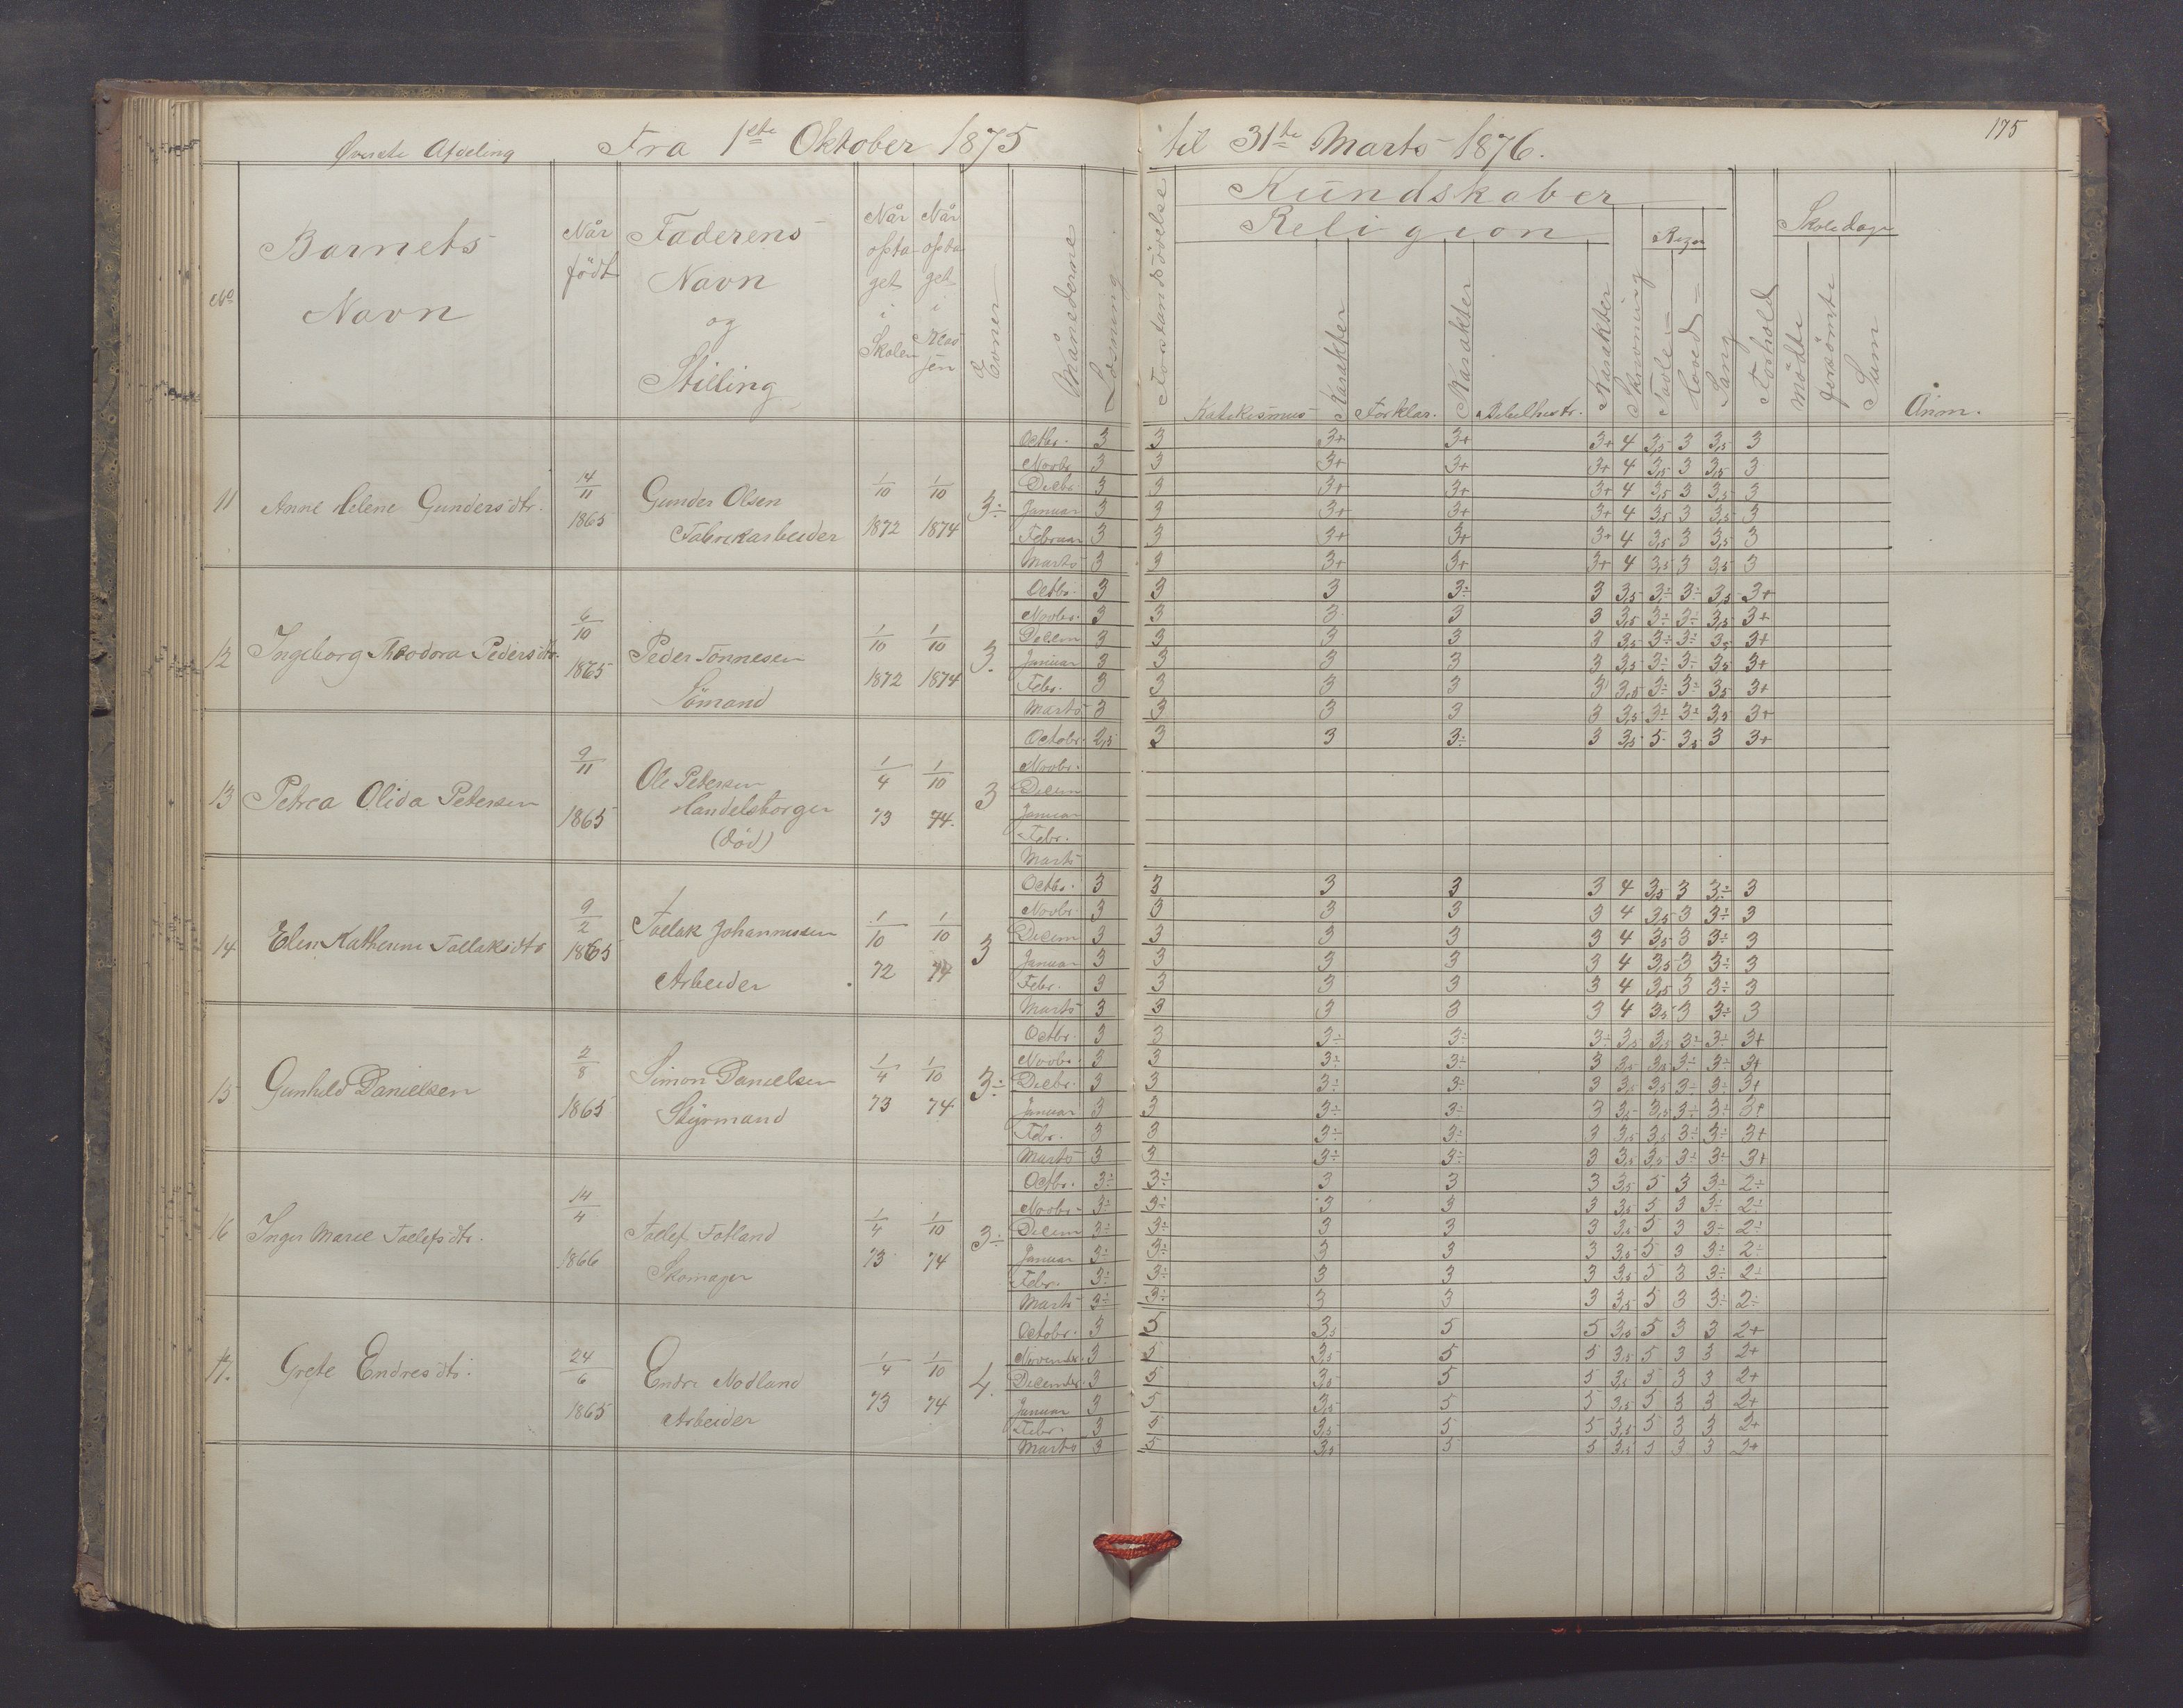 Øverste Afdeling Fra 1ste Oktober 1875 til 31te Marts 1876. 175
No Barnets Navn Når födt Faderens Navn og Stilling Når optaget i Skolen Når optaget i Klassen Evner Månederne Læsning Forstandsövelse Kundskaber Religion Katekismus Karakter Forklar. Karakter Bibelhistr. Karakter Skrivning Regn Tavle- Hoved- Sang Forhold Skoledage mödte forsömte Sum Anm.
11 Anne Helene Gundersdtr. 14/11 1865 Gunder Olsen Fabrikarbeider 1/10 1872 1/10 1874 3÷
Octbr. 3 3 3+ 3+ 3+ 4 3,5 3 3,5 3
Novbr. 3 3 3+ 3+ 3+ 4 3,5 3 3,5 3
Decbr. 3 3 3+ 3+ 3+ 4 3,5 3 3,5 3
Januar 3 3 3+ 3+ 3+ 4 3,5 3 3,5 3
Februar 3 3 3+ 3+ 3+ 4 3,5 3 3,5 3
Marts 3 3 3+ 3+ 3+ 4 3,5 3 3,5 3
12 Ingeborg Theodora Pedersdtr. 6/10 1865 Peder Tönnesen Sömand 1/10 1872 1/10 1874 3.
Octbr. 3 3 3 3÷ 3 3,5 3÷ 3÷ 3,5 3+
Novbr. 3 3 3 3 3 3,5 3÷ 3÷ 3,5 3+
Decem 3 3 3 3 3 3,5 3÷ 3÷ 3,5 3+
Januar 3 3 3 3 3 3,5 3÷ 3÷ 3,5 3+
Febr. 3 3 3 3 3 3,5 3÷ 3÷ 3,5 3+
Marts 3 3 3 3 3 3,5 3÷ 3÷ 3,5 3+
13 Petrea Olida Petersen 9/11 1865 Ole Petersen Handelsborger (död) 1/4 73 1/10 74. 3
Octobr. 2,5 3 3 3÷ 3 3,5 5 3,5 3 3+
Novbr.
Decem
Januar
Febr.
Marts
14 Elen Kathrine Tollaksdtr 9/2 1865 Tollak Johannessen Arbeider 1/10 72 1/10 74 3
Octbr. 3 3 3 3 3 4 3,5 3 3÷ 3
Novbr. 3 3 3 3 3 4 3,5 3 3÷ 3
Decem 3 3 3 3 3 4 3,5 3 3÷ 3
Januar 3 3 3 3 3 4 3,5 3 3÷ 3
Febr. 3 3 3 3 3 4 3,5 3 3÷ 3
Marts 3 3 3 3 3 4 3,5 3 3÷ 3
15 Gunhild Danielsen 2/8 1865 Simon Danielsen Styrmand 1/4 73 1/10 74 3÷
Octbr. 3 3 3÷ 3÷ 3÷ 3,5 3,5 3÷ 3÷ 3+
Novbr. 3 3 3÷ 3÷ 3 3,5 3,5 3÷ 3÷ 3+
Decbr. 3 3 3÷ 3÷ 3 3,5 3,5 3÷ 3÷ 3+
Januar 3 3 3÷ 3÷ 3 3,5 3,5 3÷ 3÷ 3+
Febr. 3 3 3÷ 3÷ 3 3,5 3,5 3÷ 3÷ 3+
Marts 3 3 3÷ 3÷ 3 3,5 3,5 3÷ 3÷ 3+
16 Inger Marie Tollefsdtr. 14/4 1866 Tollef Fotland Skomager 1/4 73 1/10 74 3÷
Octbr. 3÷ 3÷ 3 3 3 3,5 5 3 3÷ 2÷
Novbr. 3÷ 3÷ 3 3 3 3,5 5 3 3÷ 2÷
Decem 3÷ 3÷ 3 3 3 3,5 5 3 3÷ 2÷
Januar 3÷ 3÷ 3 3 3 3,5 5 3 3÷ 2÷
Febr. 3÷ 3÷ 3 3 3 3,5 5 3 3÷ 2÷
Marts 3÷ 3÷ 3 3 3 3,5 5 3 3÷ 2÷
17. Grete Endresdtr. 24/6 1865 Endre Nodland Arbeider 1/4 73 1/10 74 4.
Octobr. 3 5 3,5 5 5 3,5 5 3 3 2+
November 3 5 3,5 5 5 3,5 5 3 3 2+
December 3 5 3,5 5 5 3,5 5 3 3 2+
Januar 3 5 3,5 5 5 3,5 5 3 3 2+
Febr. 3 5 3,5 5 5 3,5 5 3 3 2+
Marts 3 5 3,5 5 5 3,5 5 3 3 2+